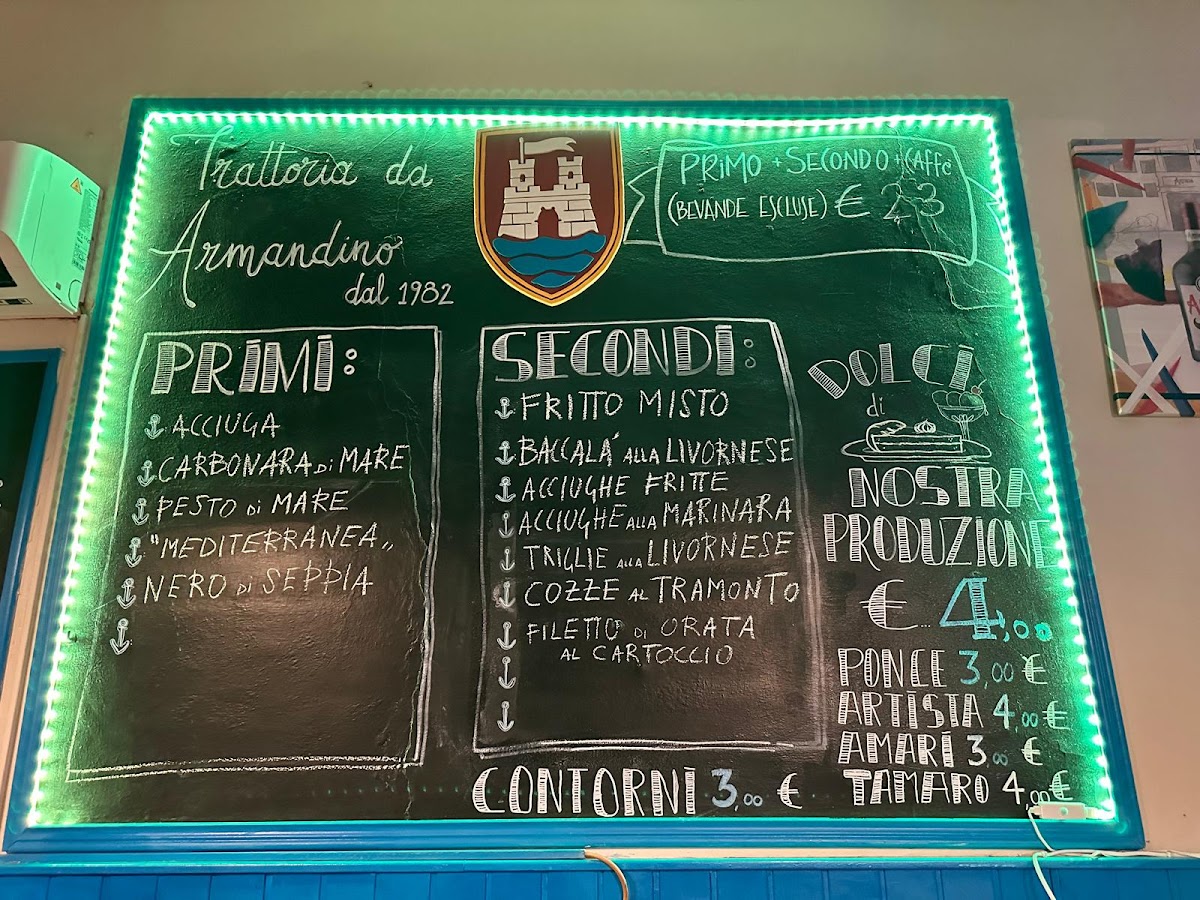 Trattoria da
Armandino
dal 1982
PRIMO + SECONDO + CAFFÈ
(BEVANDE ESCLUSE) € 23
PRIMI:
ACCIUGA
CARBONARA di MARE
PESTO di MARE
"MEDITERRANEA„
NERO DI SEPPIA
SECONDI:
FRITTO MISTO
BACCALÁ ALLA LIVORNESE
ACCIUGHE FRITTE
ACCIUGHE ALLA MARINARA
TRIGLIE ALLA LIVORNESE
COZZE AL TRAMONTO
FILETTO DI ORATA
AL CARTOCCIO
DOLCI
di
NOSTRA
PRODUZIONE
€... 4,00
PONCE 3,00 €
ARTISTA 4,00 €
AMARI 3,00 €
TAMARO 4,00 €
CONTORNI 3,00 €